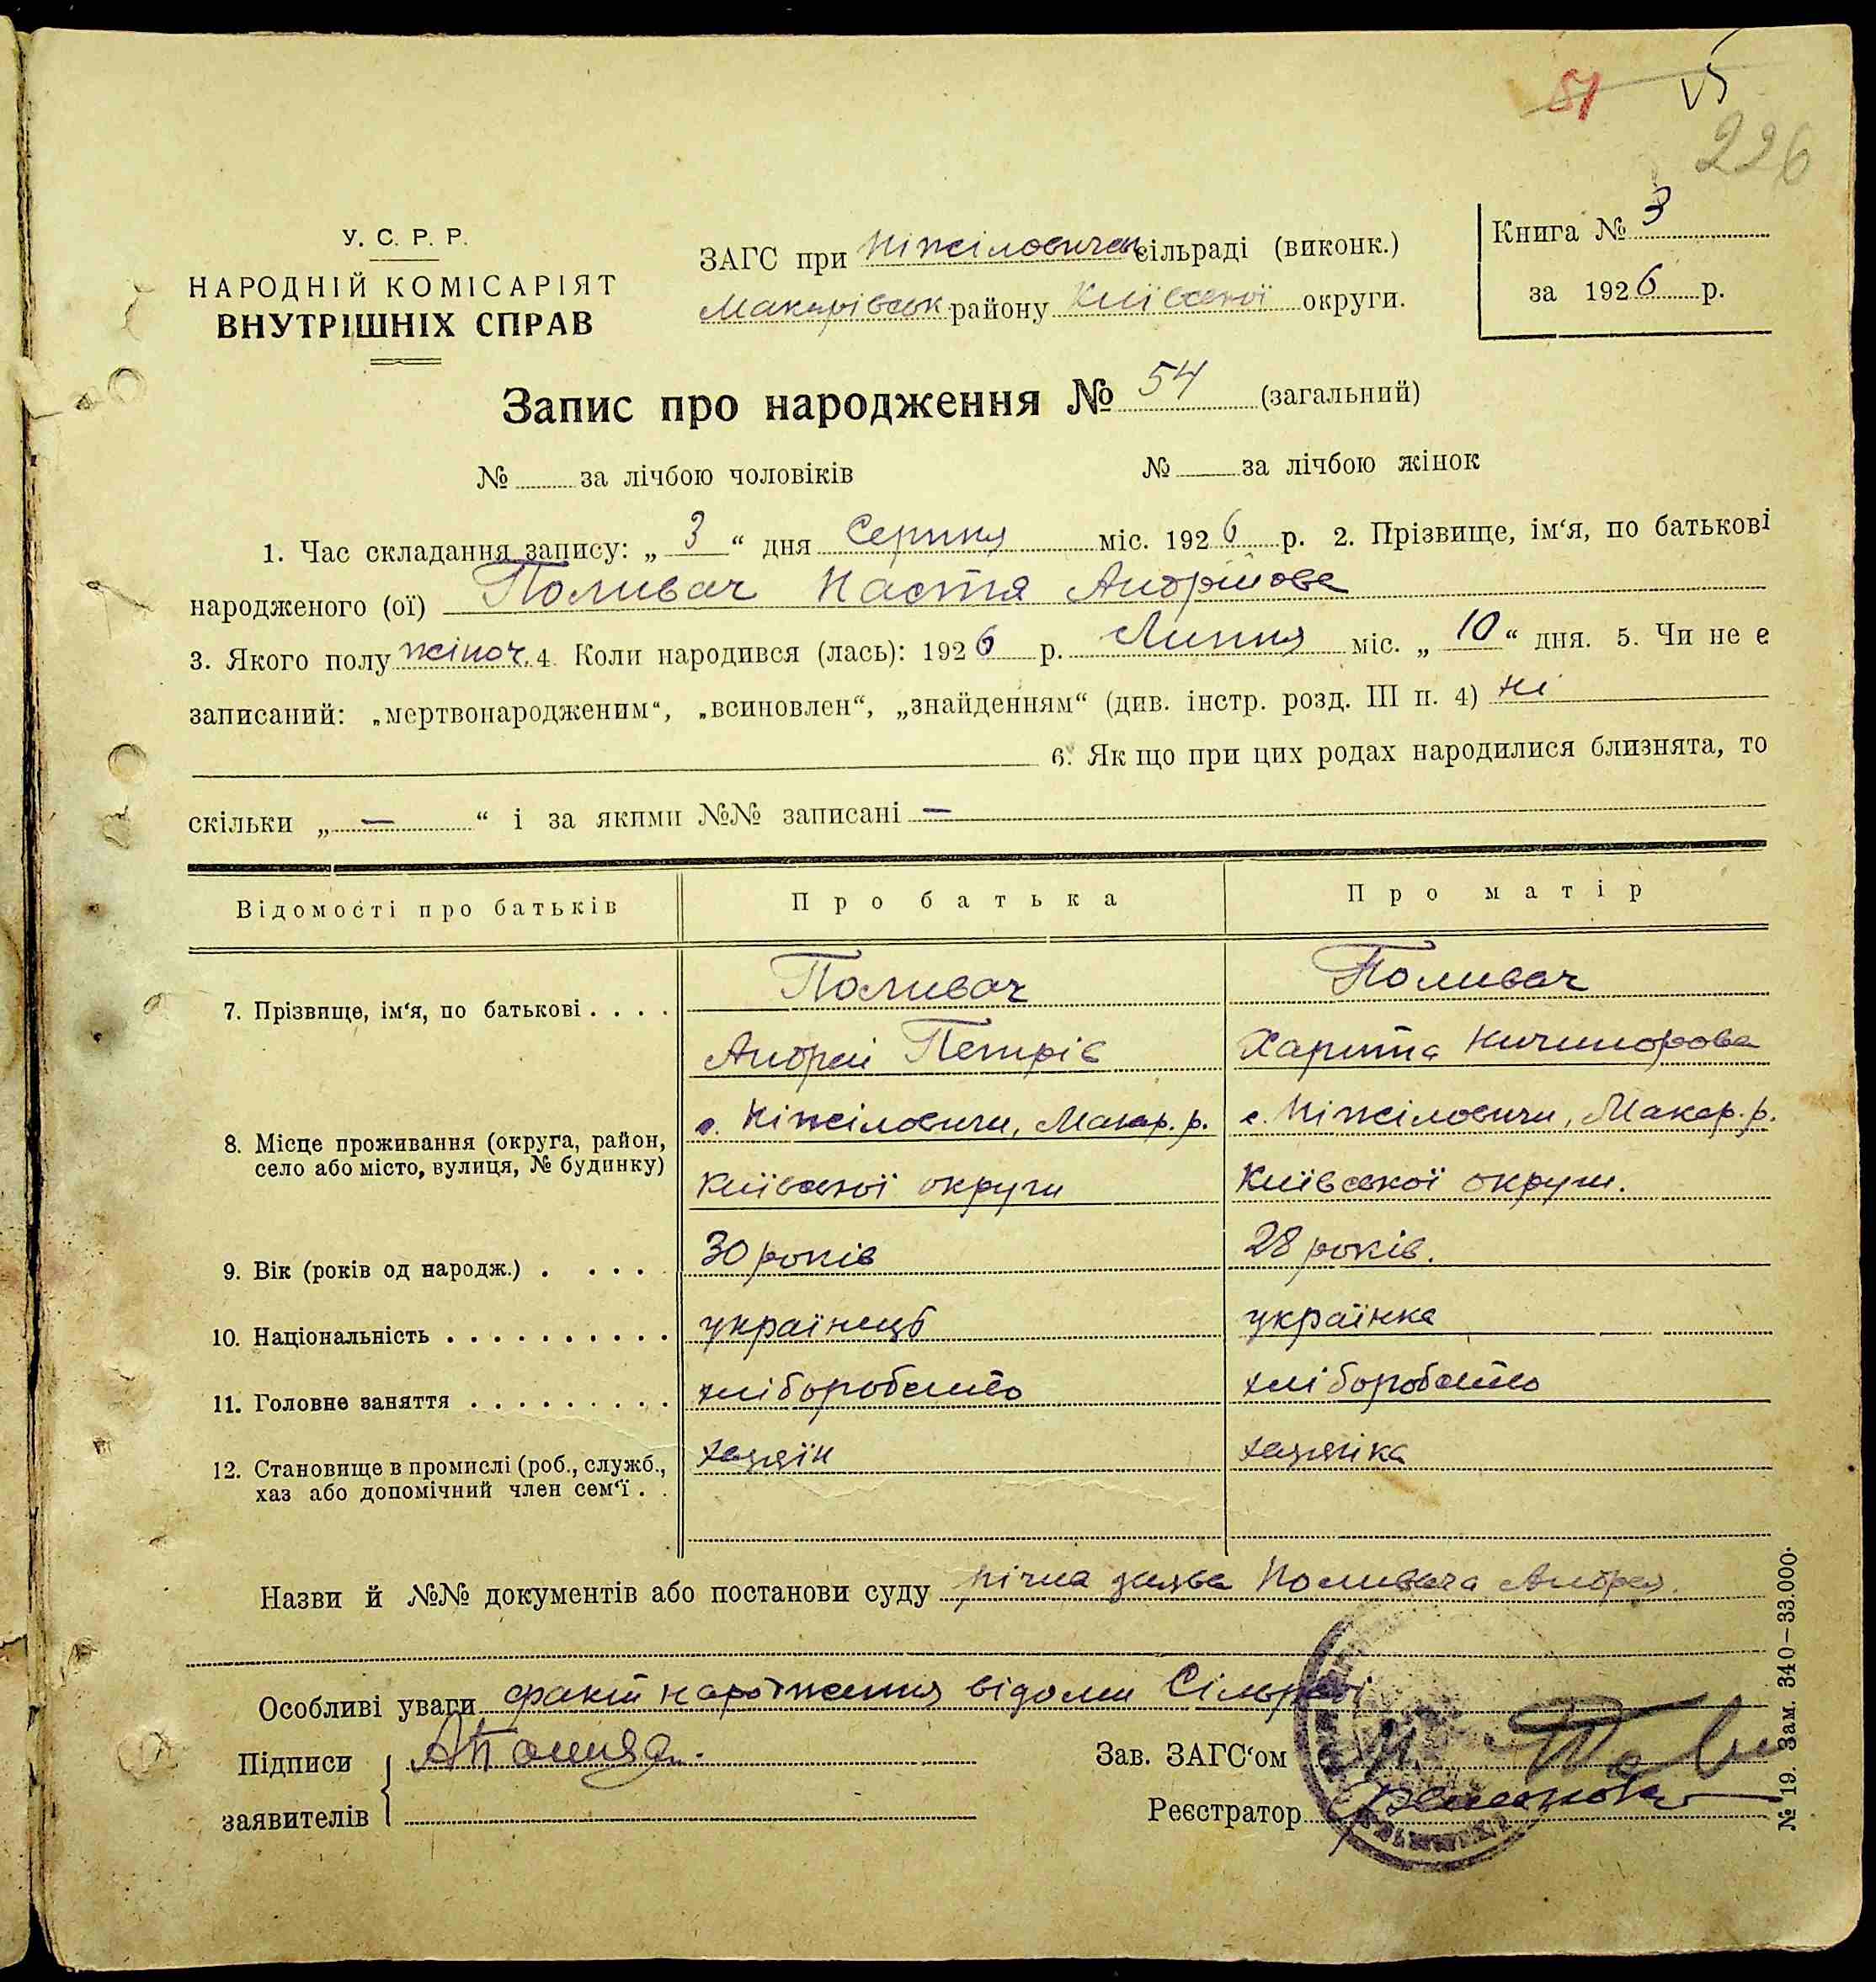 51 V5
226
У. С. Р. Р.
НАРОДНІЙ КОМІСАРІЯТ
ВНУТРІШНІХ СПРАВ
ЗАГС при Ніжіловичск сільраді (виконк.)
Макарівськ району Київської округи.
Книга № 3
за 1926 р.
Запис про народження № 54 (загальний)
№ за лічбою чоловіків № за лічбою жінок
1. Час складання запису: „ 3 “ дня Серпня міс. 1926 р. 2. Прізвище, ім‘я, по батькові
народженого (ої) Поливач Настя Андрійова
3. Якого полу жіноч. 4 Коли народився (лась): 1926 р. Липня міс. „ 10 “ дня. 5. Чи не є
записаний: „мертвонародженим“, „всиновлен“, „знайденням“ (див. інстр. розд. III п. 4) ні
6. Як що при цих родах народилися близнята, то
скільки „ — “ і за якими №№ записані —
Відомості про батьків Про батька Про матір
7. Прізвище, ім‘я, по батькові . . . . Поливач Поливач
Андрей Петрів Харита Ничипорова
8. Місце проживання (округа, район, с. Ніжіловичи, Макар. р. с. Ніжіловичи, Макар. р.
село або місто, вулиця, № будинку) Київської округи Київської округи.
9. Вік (років од народж.) . . . . 30 років 28 років.
10. Національність . . . . . . . . . . українець українка
11. Головне заняття . . . . . . . . . хліборобство хліборобство
12. Становище в промислі (роб., служб., хазяїн хазяйка
хаз або допомічний член сем‘ї . .
Назви й №№ документів або постанови суду річна заява Поливача Андрея.
Особливі уваги факт народження відомий Сільраді
Підписи
заявителів
Зав. ЗАГС‘ом
Реєстратор
№ 19. Зам. 340—33.000.